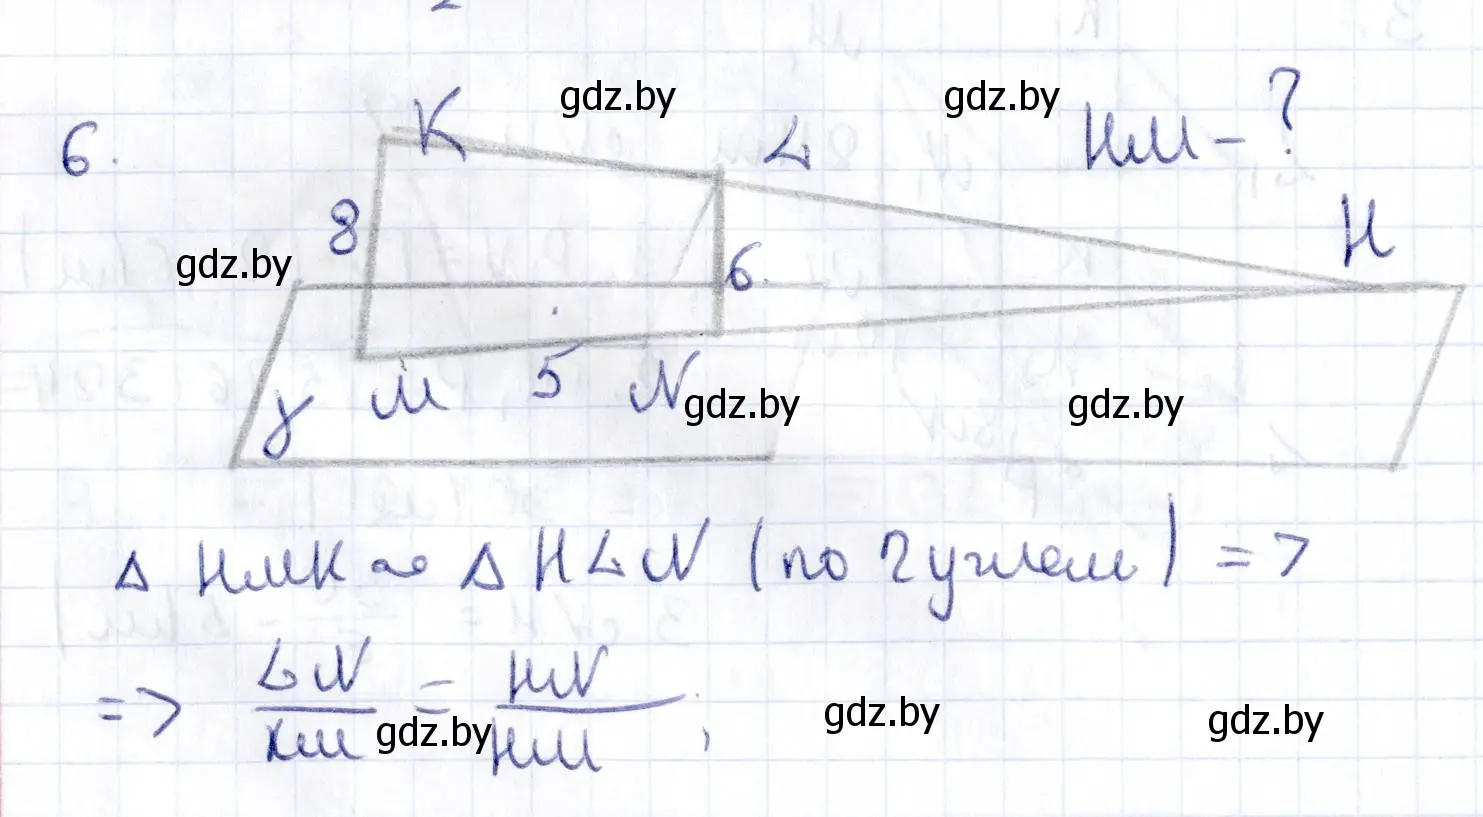 6.
K
L
HM - ?
8
6.
H
γ
M
5
N
Δ HMK ∾ Δ HLN (по 2 углам) =>
=> LN/KM = HN/HM ;
gdz.by
gdz.by
gdz.by
gdz.by
gdz.by
gdz.by
gdz.by
gdz.by